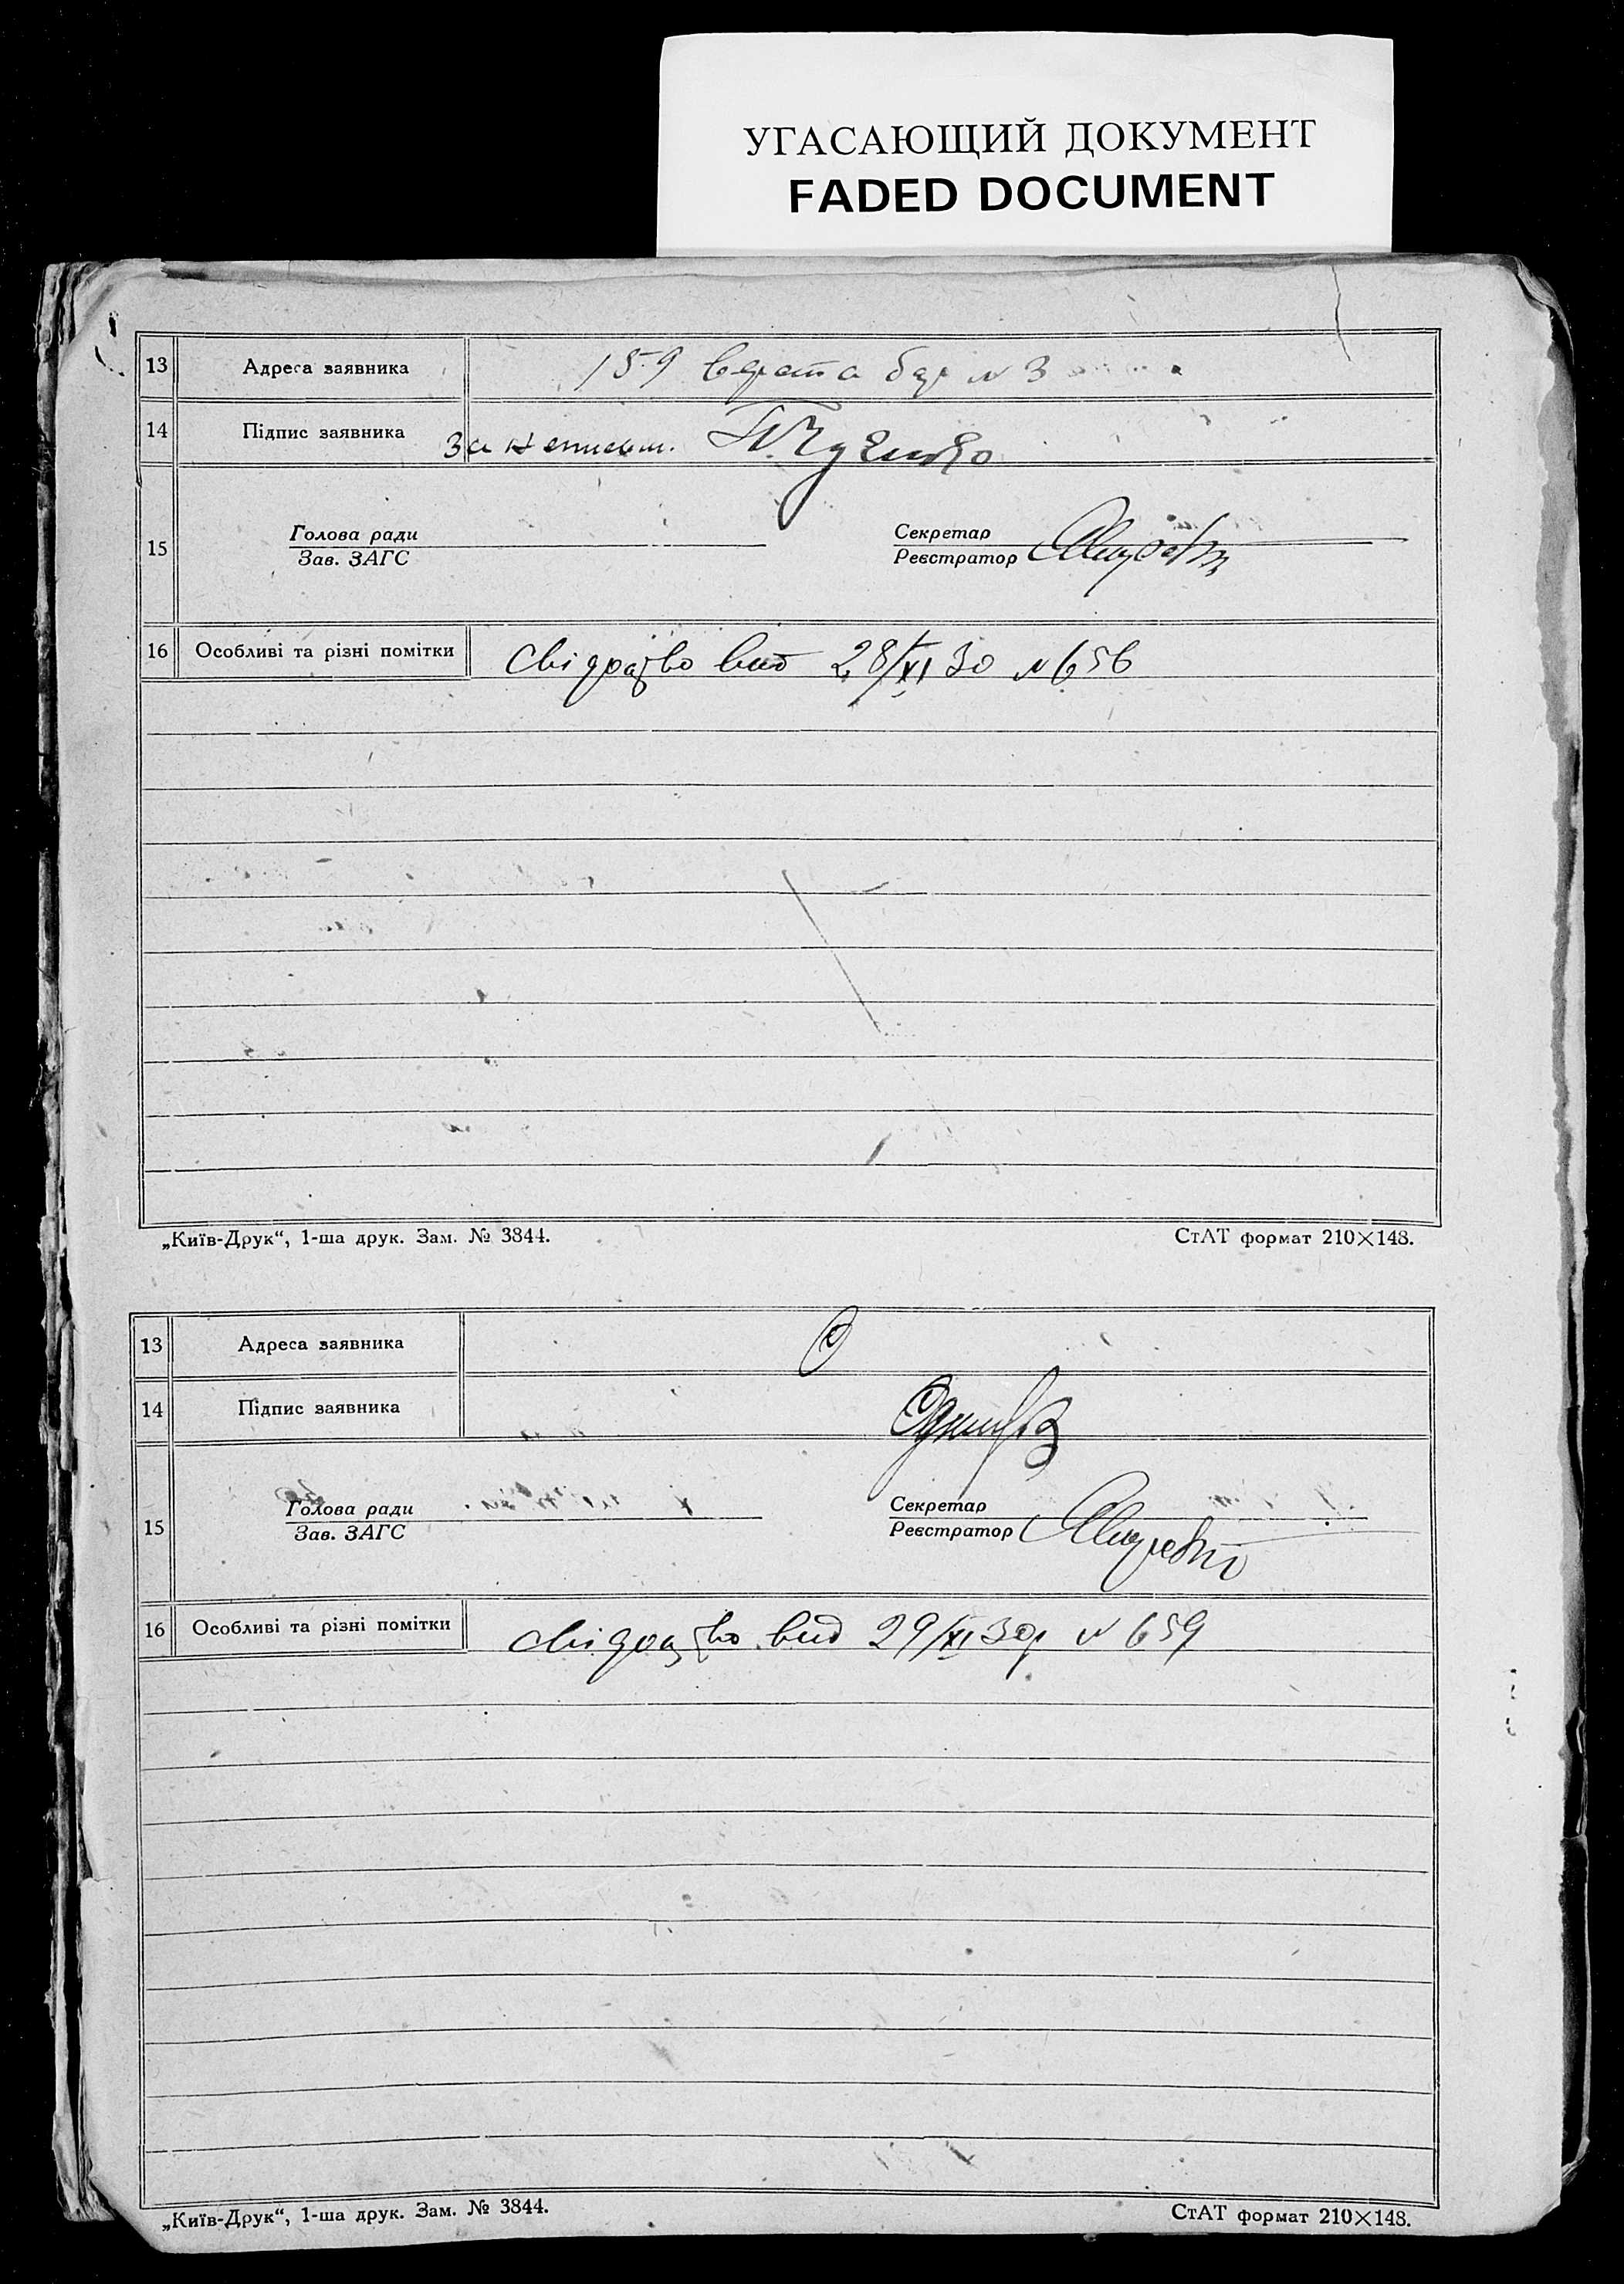 УГАСАЮЩИЙ ДОКУМЕНТ
FADED DOCUMENT
13 Адреса заявника 159 верста буд № 3
14 Підпис заявника За неписьм.
15 Голова ради Зав. ЗАГС Секретар Реєстратор
16 Особливі та різні помітки Свідоцтво вид 28/XI 30 № 656
„Київ-Друк“, 1-ша друк. Зам. № 3844. СтАТ формат 210×148.
13 Адреса заявника
14 Підпис заявника
15 Голова ради Зав. ЗАГС Секретар Реєстратор
16 Особливі та різні помітки свідоцтво вид 29/XI 30р № 659
„Київ-Друк“, 1-ша друк. Зам. № 3844. СтАТ формат 210×148.